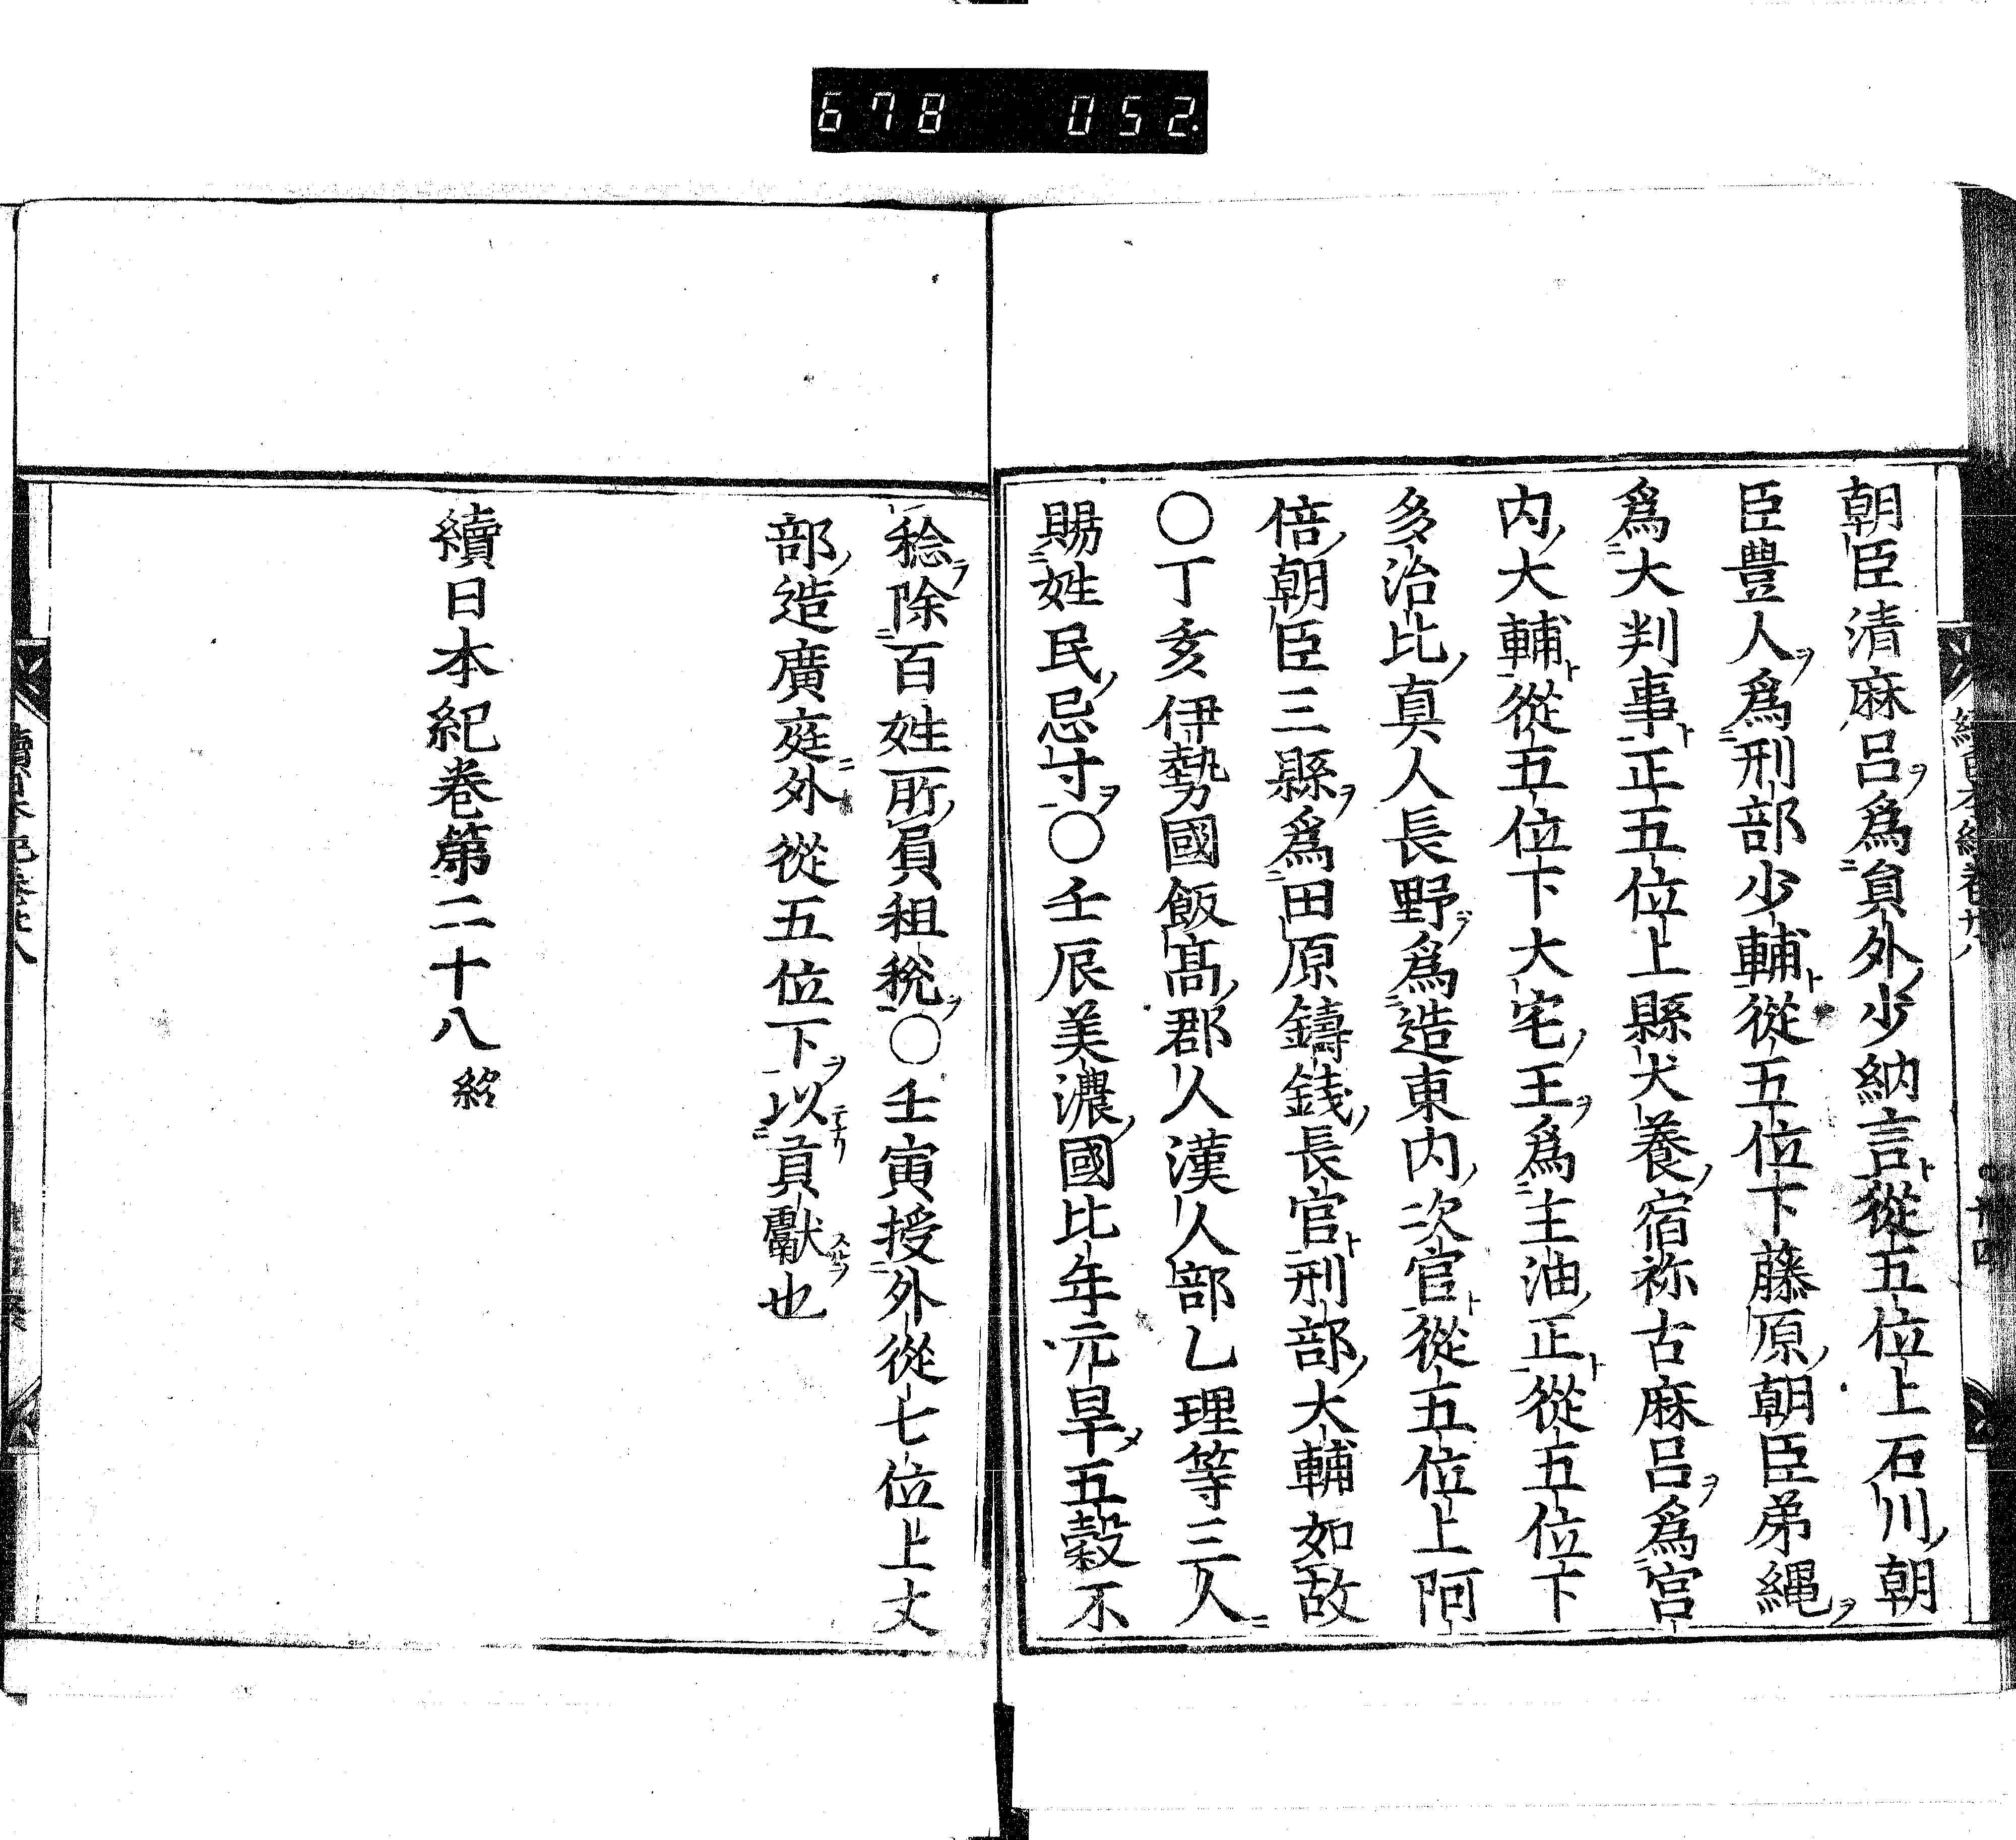 678 052
朝臣清麻呂為員外少納言從五位上石川朝
臣豊人爲刑部少輔從五位下藤原朝臣弟縄
爲大判事正五位上縣犬養宿祢古麻呂爲宮
内大輔從五位下大宅王爲主油正從五位下
多治比真人長野爲造東内次官從五位上阿
倍朝臣三縣爲田原鑄錢長官刑部大輔如故
〇丁亥伊勢國飯髙郡人漢人部乙理等三人
賜姓民忌寸〇壬辰美濃國比年亢旱五穀不
稔除百姓所負租稅〇壬寅授外從七位上丈
部造廣庭外從五位下以貢獻也
續日本紀巻第二十八 終